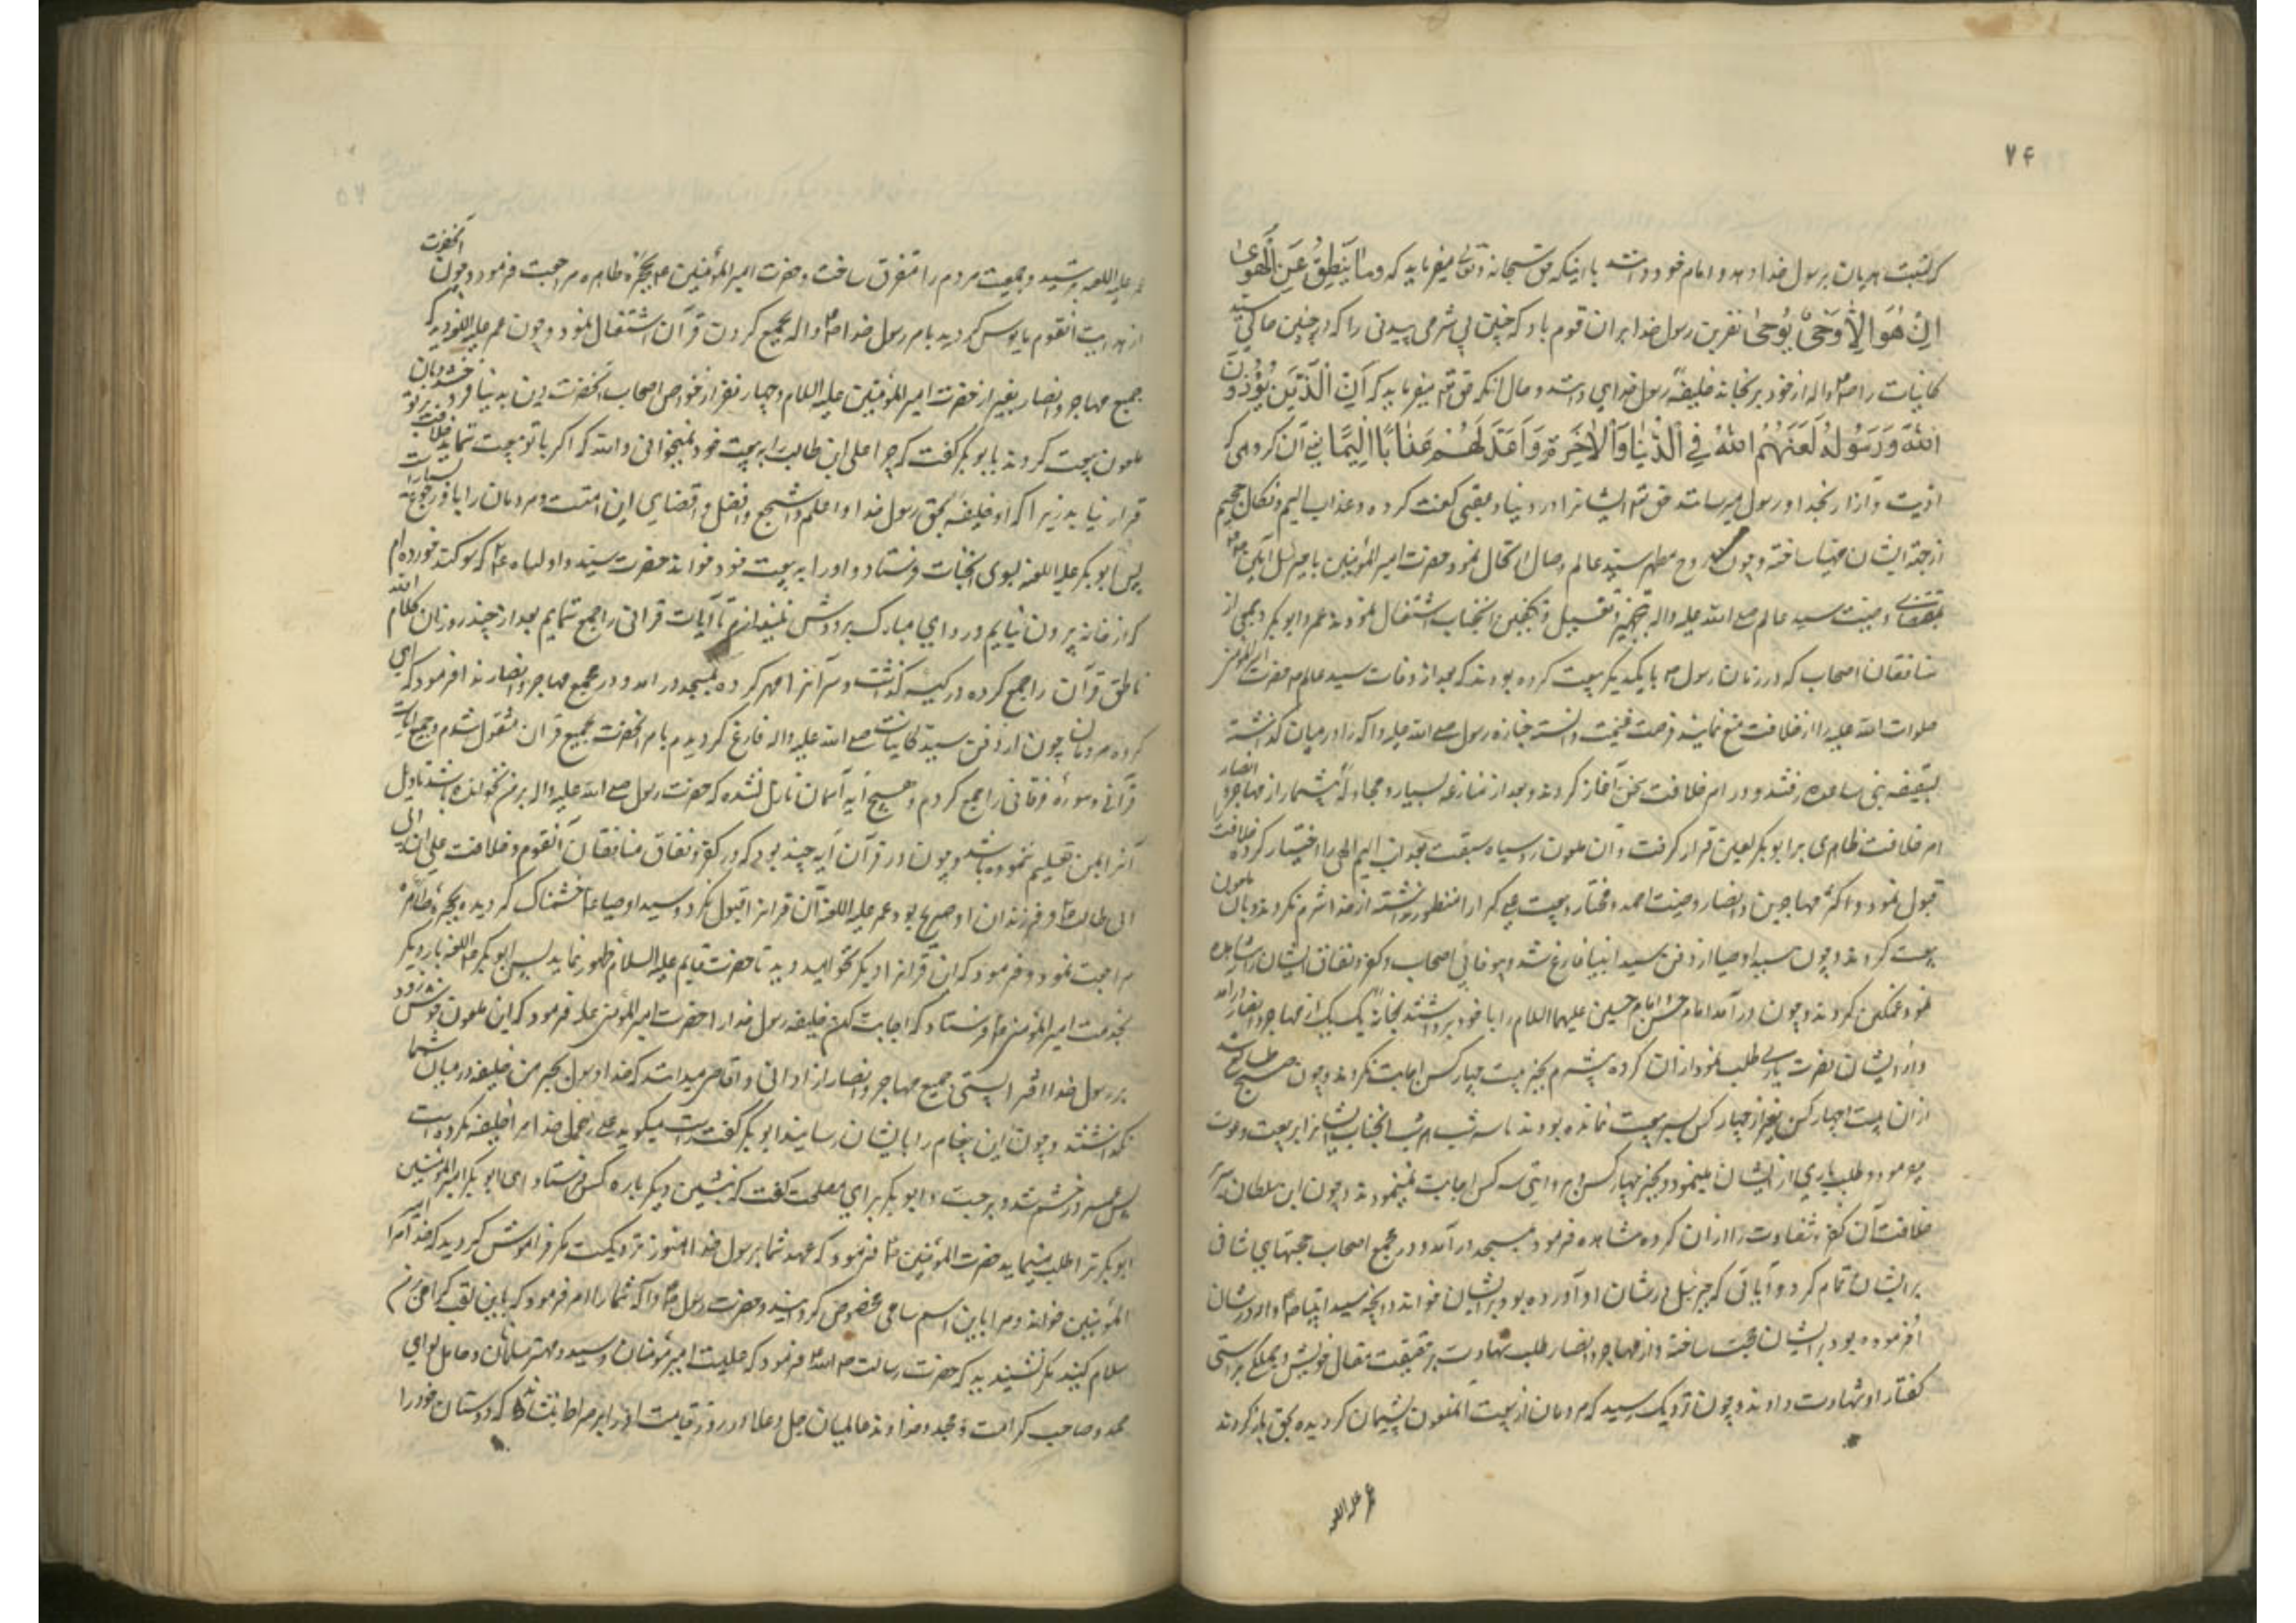 ۷۴
که نسبت هذیان برسول خدا دهد و امام خود دانند با اینکه حق سبحانه و تعالی میفرماید که وَمَا یَنطِقُ عَنِ الْهَوَىٰ
اِنْ هُوَ اِلَّا وَحْیٌ یُوحىٰ نفرین رسول خدا بران قوم باد که چنین بی شرمی بیدینی را که در چنین حالتی سید
کاینات را ص واله از خود برنجاند خلیفه رسول خدای دانند و حال آنکه حق تع میفرماید که اِنَّ الَّذینَ یُؤْذُونَ
اللّٰهَ وَرَسُولَهُ لَعَنَهُمُ اللّٰهُ فِی الدُّنْیَا وَالْاٰخِرَةِ وَاَعَدَّ لَهُمْ عَذَابًا اَلِیمًا یعنی آن گروهی که
اذیت و آزار بخدا و رسول میرسانند حق تع ایشانرا در دنیا و عقبی لعنت کرده و عذاب الیم و نکال جحیم
از جهة ایشان مهیا ساخته و چون روح مطهر سید عالم وصال انتقال نمود حضرت امیر المؤمنین با جبرئیل امین
بمقتضای وصیت سید عالم صلی الله علیه واله بتجهیز و تغسیل و تکفین آنجناب اشتغال نمودند عمر و ابو بکر و جمعی از
منافقان اصحاب که در زمان رسول ص با یکدیگر بیعت کرده بودند که بعد از وفات سید عالم ص حضرت امیر المؤمنین
صلوات الله علیه را از خلافت منع نمایند فرصت غنیمت دانسته جنازه رسول صلی الله علیه واله را در میان گذاشته
بسقیفه بنی ساعده رفتند و در امر خلافت سخن آغاز کردند و بعد از منازعه بسیار و مجادله بیشمار از مهاجر و انصار
امر خلافت ظاهری بر ابو بکر لعین قرار گرفت و آن ملعون روسیاه سبقت بعذاب الیم الهی را اختیار کرده خلافت
قبول نمود و اکثر مهاجرین و انصار وصیت احمد مختار و بیعت حیدر کرار را منظور نداشته از خدا شرم نکردند و بان ملعون
بیعت کردند و چون سید اوصیا از دفن سید انبیا فارغ شد و بیوفائی اصحاب و کفر و نفاق ایشان را مشاهده
نمود غمگین گردید و چون شب در آمد امام حسن و امام حسین علیهما السلام را با خود برداشته بخانه یک یک از مهاجر و انصار در آمد
و از ایشان نصرت و یاری طلب نمود از آن گروه بیشرم بجز بیست چهار کس اجابت نکردند و چون صبح طالع شد
از آن بیست و چهار کس بغیر از چهار کس بر سر بیعت نمانده بودند تا سه شب امر شد آنجناب ایشانرا به بیعت دعوت
میفرمود و طلب یاری از ایشان مینمود و بجز چهار کس و بروایتی سه کس اجابت نمینمودند و چون این سلطان سریر
خلافت آن کفر و شقاوت را از آن گروه مشاهده فرمود بمسجد در آمد و در مجمع اصحاب حجتهای شافی
بر ایشان تمام کرد و آیاتی که جبرئیل در شان او آورده بود بر ایشان خواند و آنچه سید انبیا ص واله در شان
او فرموده بود بر ایشان حجت ساخت و از مهاجر و انصار طلب شهادت بر حقیقت مقال خویش و همگی براستی
گفتار او شهادت دادند و چون نزدیک رسید که مردمان از بیعت آنملعون پشیمان گردیده بحق باز گردند
عمر علیه اللعنه
۷۵
عمر علیه اللعنه ترسید و جمعیت مردم را متفرق ساخت و حضرت امیر المؤمنین ع بحجره طاهره مراجعت فرمود و چون آنحضرت
از هدایت آنقوم مایوس گردید بامر رسول خدا ص واله بجمع کردن قرآن اشتغال نمود و چون عمر علیه اللعنه دید که
جمیع مهاجر و انصار بغیر از حضرت امیر المؤمنین علیه السلام و چهار نفر از خواص اصحاب آنحضرت دین بدنیا فروخته بان
ملعون بیعت کردند بابو بکر گفت که چرا علی ابن طالب را به بیعت خود نمیخوانی والله که اگر با تو بیعت ننماید خلافت بر تو
قرار نیابد زیرا که او خلیفه بحق رسول خدا و اعلم و اشجع و افضل و اقضای این امتست و مردمان را باو رجوعه بسیار است
پس ابو بکر علیه اللعنه بسوی آنجناب فرستاد و او را به بیعت خود خواند حضرت سید اولیاء ع که سوگند خورده ام
که از خانه بیرون نیایم و ردای مبارک بر دوش نمیندازم تا آیات قرانی را جمع ننمایم بعد از چند روز آن کلام الله
ناطق قرآن را جمع کرده در کیسه گذاشت و سر آنرا مهر کرده بمسجد در آمد و در مجمع مهاجر و انصار ندا فرمود که ای
گروه مردمان چون از دفن سید کاینات صلی الله علیه واله فارغ گردیدم بامر آنحضرت بجمع قرآن مشغول شدم و جمیع آیات
قرآنی و سوره فرقانی را جمع کردم و هیچ آیه از آسمان نازل نشده که حضرت رسول صلی الله علیه واله بر من نخوانده باشد و تاویل
آنرا بمن تعلیم ننموده باشد و چون در قرآن آیه چند بود که در کفر و نفاق منافقان آنقوم و خلافت علی ابن ابی
ابی طالب ع و فرزندان او صریح بود عمر علیه اللعنه آن قرآنرا قبول نکرد و سید اوصیا ع خشمناک گردیده بحجره طاهره
مراجعت نمود و فرمود که این قرآنرا دیگر نخواهید دید تا حضرت قایم علیه السلام ظهور نماید پس ابو بکر علیه اللعنه بار دیگر
بخدمت امیر المؤمنین ع فرستاد که اجابت کن خلیفه رسول خدا را حضرت امیر المؤمنین علیه فرمود که این ملعون خوش زود
بر رسول خدا افترا بستی جمیع مهاجر و انصار از ادانی و اقاصی میدانند که خدا و رسول بجز من خلیفه در میان شما
نگذاشتند و چون این پیغام را بایشان رسانیدند ابو بکر گفت راست میگوید علی رسول خدا مرا خلیفه نکرده است
پس عمر در خشم شد و برجست و ابو بکر برای مصلحت گفت که بنشین دیگر باره کس فرستاد ای ابو بکر امیر المؤمنین
ابو بکر ترا طلب مینماید حضرت المؤمنین ع فرمود که عهد شما برسول خدا هنوز نزدیکست مگر فراموش کردید که خدا مرا امیر
المؤمنین خواند و مرا باین اسم سامی مخصوص گردانید و حضرت رسول ص واله شما را امر فرمود که باین لقب گرامی بر من
سلام کنید مگر نشنیدید که حضرت رسالت ص الله فرمود که علیست امیر مؤمنان و سید و مهتر مسلمانان و حامل لوای
حمد و صاحب کرامت و مجد و خداوند عالمیان جل و علا او در روز قیامت او را بر صراط بنشاند که دوستان خود را